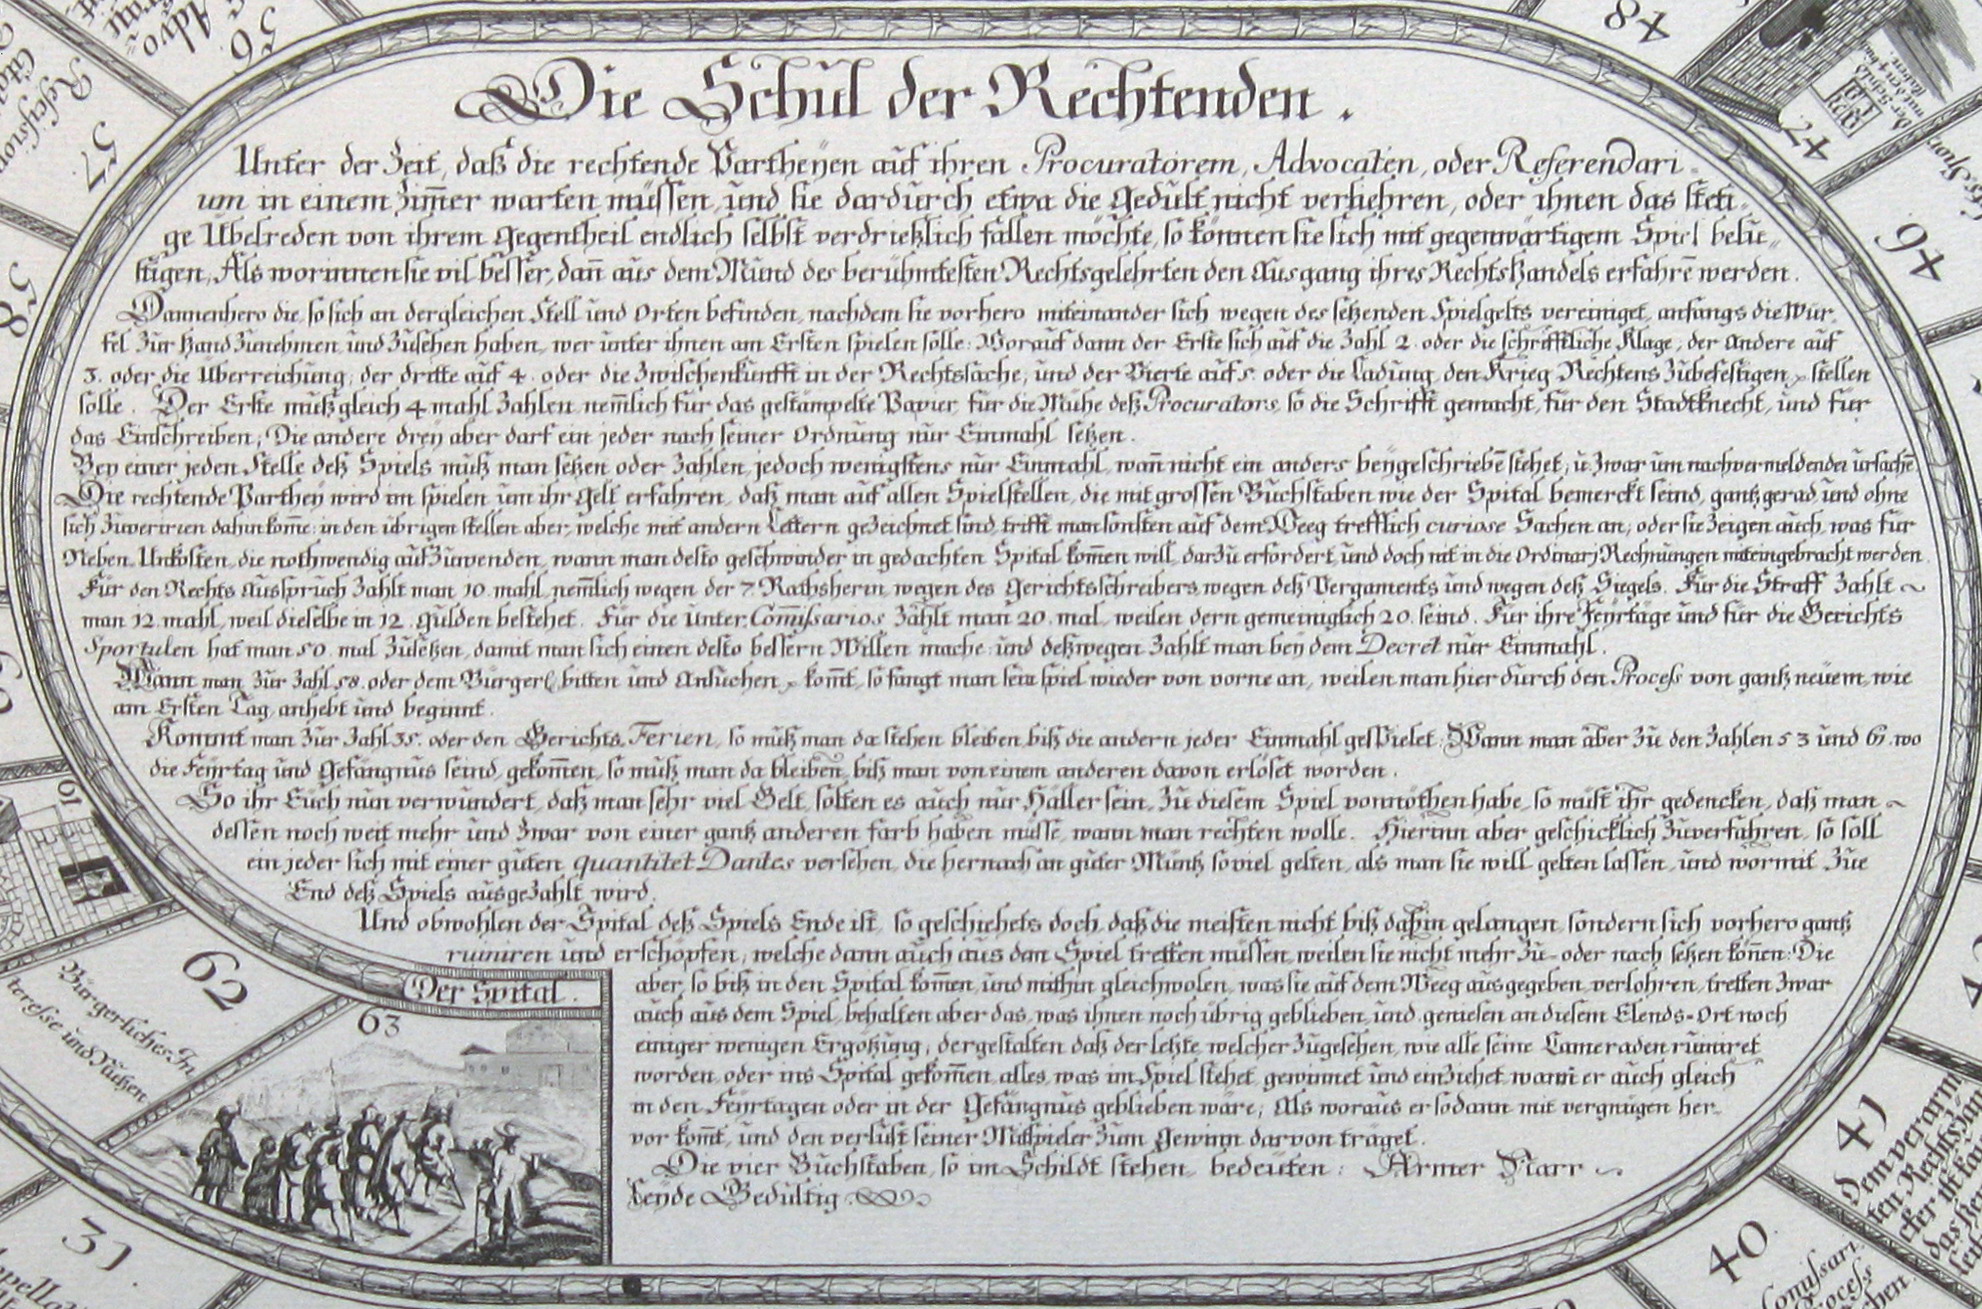 Die Schul der Rechtenden.
Unter der Zeit, daß die rechtende Partheyen auf ihren Procuratorem, Advocaten, oder Referendari-
um in einem Zim̄er warten müssen, und sie dardurch etwa die Gedult nicht verliehren, oder ihnen das steti-
ge Übelreden von ihrem Gegentheil endlich selbst verdrießlich fallen möchte, so können sie sich mit gegenwärtigem Spiel belu-
stigen, Als worinnen sie vil besser, dan̄ aus dem Mund des berühmtesten Rechtsgelehrten den Ausgang ihres Rechtshandels erfahrē werden.
Dannenhero die, so sich an dergleichen Stell und Orten befinden, nachdem sie vorhero miteinander sich wegen des setzenden Spielgelts vereiniget, anfangs die Wür-
fel zur Hand zunehmen, und zusehen haben, wer unter ihnen am Ersten spielen solle: Worauf dann der Erste sich auf die Zahl 2. oder die schrifftliche Klage, der Andere auf
3. oder die Überreichung, der dritte auf 4. oder die Zwischenkunfft in der Rechtssache, und der Vierte auf 5. oder die Ladung, den Krieg Rechtens zubefestigen, stellen
solle. Der Erste muß gleich 4 mahl Zahlen, nem̄lich für das gestämpelte Papier, für die Mühe deß Procurators, so die Schrifft gemacht, für den Stadtknecht, und für
das Einschreiben; Die andere drey aber darf ein jeder nach seiner Ordnung nur Einmahl setzen.
Bey einer jeden Stelle deß Spiels muß man setzen oder Zahlen, jedoch wenigstens nur Einmahl, wan̄ nicht ein anders beygeschriebē stehet, u. zwar um nachvermeldender ursachē
Die rechtende Parthey wird im spielen um ihr Gelt erfahren, daß man auf allen Spielstellen, die mit grossen Buchstaben wie der Spital bemerckt seind, gantz gerad und ohne
sich zuverirren dahin kom̄e: in den übrigen stellen aber, welche mit andern Lettern gezeichnet sind, trifft man sonsten auf dem Weeg trefflich curiose Sachen an, oder sie zeigen auch, was für
Neben Unkosten, die nothwendig aufzuwenden, wann man desto geschwinder in gedachten Spital kom̄en will, darzu erfordert, und doch nit in die Ordinari Rechnungen miteingebracht werden.
Für den Rechts Ausspruch Zahlt man 10. mahl, nem̄lich wegen der 7. Rathsherrn, wegen des Gerichtsschreibers, wegen deß Pergaments und wegen deß Siegels. Für die Straff Zahlt
man 12. mahl, weil dieselbe in 12. Gulden bestehet. Für die Unter Com̄issarios Zahlt man 20. mal, weilen dern gemeiniglich 20. seind. Für ihre Feyrtäge und für die Gerichts
Sportulen hat man 50. mal Zusetzen, damit man sich einen desto bessern Willen mache: und deßwegen Zahlt man bey dem Decret nur Einmahl.
Wann man zur Zahl 58. oder dem Bürgerl. bitten und Ansuchen kom̄t, so fangt man sein spiel wieder von vorne an, weilen man hierdurch den Process von gantz neüem, wie
am Ersten Tag, anhebt und beginnt.
Kommt man zur Zahl 35. oder den Gerichts Ferien, so muß man da stehen bleiben, biß die andern jeder Einmahl gespielet. Wann man aber zu den Zahlen 53 und 61. wo
die Feyrtag und Gefängnus seind, gekom̄en, so muß man da bleiben, biß man von einem anderen davon erlöset worden.
So ihr Euch nun verwundert, daß man sehr viel Gelt, solten es auch nur Häller sein, zu diesem Spiel vonnöthen habe, so müst ihr gedencken, daß man
dessen noch weit mehr und zwar von einer gantz anderen farb haben müsse, wann man rechten wolle. Hierinn aber geschicklich zuverfahren, so soll
ein jeder sich mit einer guten quantitet Dantes versehen, die hernach an guter Müntz so viel gelten, als man sie will gelten lassen, und wormit zue
End deß Spiels ausgezahlt wird.
Und obwohlen der Spital deß Spiels Ende ist, so geschiehets doch, daß die meisten nicht biß dahin gelangen, sondern sich vorhero gantz
ruiniren und erschöpfen, welche dann auch aus dem Spiel tretten müssen, weilen sie nicht mehr zu- oder nach setzen kön̄en: Die
aber, so biß in den Spital kom̄en, und mithin gleichwolen, was sie auf dem Weeg ausgegeben, verlohren, tretten zwar
auch aus dem Spiel, behalten aber das, was ihnen noch übrig geblieben, und geniesen an diesem Elends-Ort noch
einiger wenigen Ergötzung; dergestalten daß der letzte, welcher zugesehen, wie alle seine Cameraden ruiniret
worden, oder ins Spital gekom̄en, alles, was im Spiel stehet, gewinnet und einziehet, wann er auch gleich
in den Feyrtagen oder in der Gefängnus geblieben wäre; Als woraus er sodann mit vergnügen her-
vor kom̄t, und den verlust seiner Mitspieler zum Gewinn darvon träget.
Die vier Buchstaben, so im Schildt stehen, bedeüten: Armer Narr
Leyde Gedultig.
Der Spital.
63
62
Bürgerliches In
teresse und Nutzen
61
31
58
57
56
48
47
46
41
Dem verarm
ten Rechts
40
Com̄issari